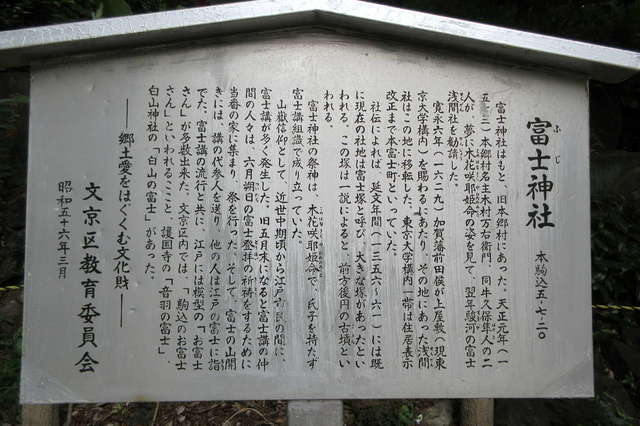 富士神社
ふじ
本駒込五・七・二〇
富士神社はもと、旧本郷村にあった。天正元年（一
五七三）本郷村名主木村万右衛門、同牛久保隼人の二
人が、夢に木花咲耶姫命の姿を見て、翌年駿河の富士
浅間社を勧請した。
寛永六年（一六二九）加賀藩前田侯が上屋敷（現東
京大学構内）を賜わるにあたり、その地にあった浅間
社はこの地に移転した。東京大学構内一帯は住居表示
改正まで本富士町といっていた。
社伝によれば、延文年間（一三五六〜六一）には既
に現在の社地は富士塚と呼び、大きな塚があったとい
われる。この塚は一説によると、前方後円の古墳とい
われる。
富士神社の祭神は、木花咲耶姫命で、氏子を持たず
富士講組織で成り立っていた。
山嶽信仰として、近世中期頃から江戸市民の間に、
富士講が多く発生した。旧五月末になると富士講の仲
間の人々は、六月朔日の富士登拝の祈祷をするために
当番の家に集まり、祭を行った。そして、富士の山開
きには、講の代参人を送り、他の人は江戸の富士に詣
でた。富士講の流行と共に、江戸には模型の「お富士
さん」が多数出来た。文京区内では、「駒込のお富士
さん」といわれるここと、護国寺の「音羽の富士」、
白山神社の「白山の富士」があった。
――郷土愛をはぐくむ文化財――
文京区教育委員会
昭和五十六年三月